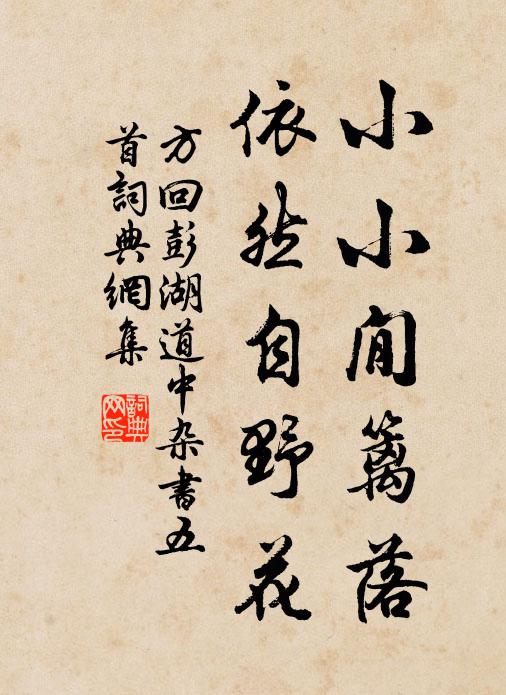 小小閒籬落
依然自野花
方回彭湖道中杂書五
首詞典網集
詞典网印